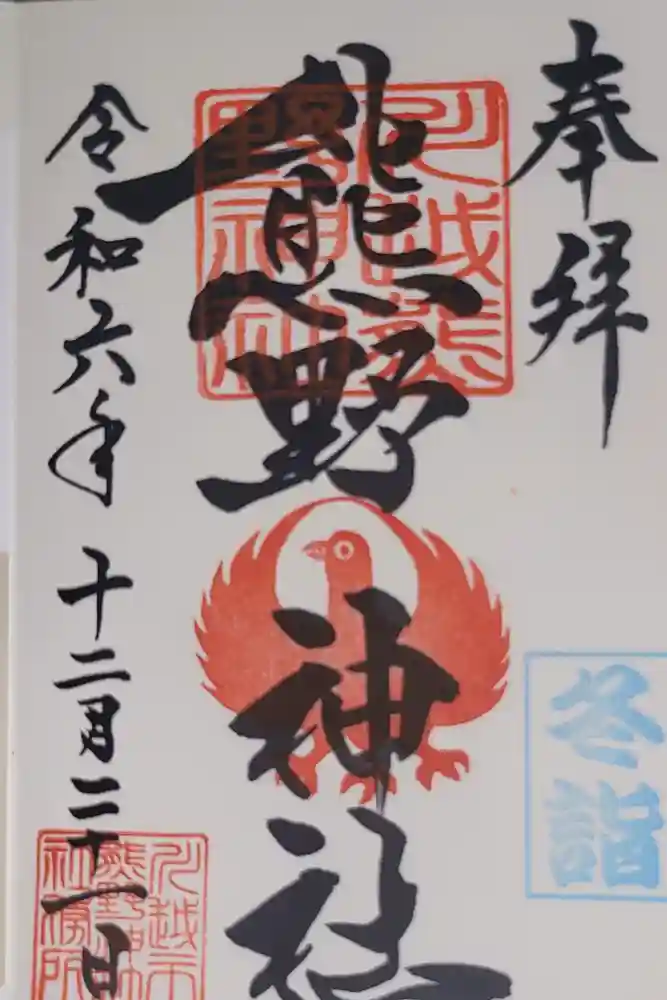 奉拝
冬詣
川越熊
野神社
熊野神社
令和六年十二月二十一日
川越市
熊野神
社務所